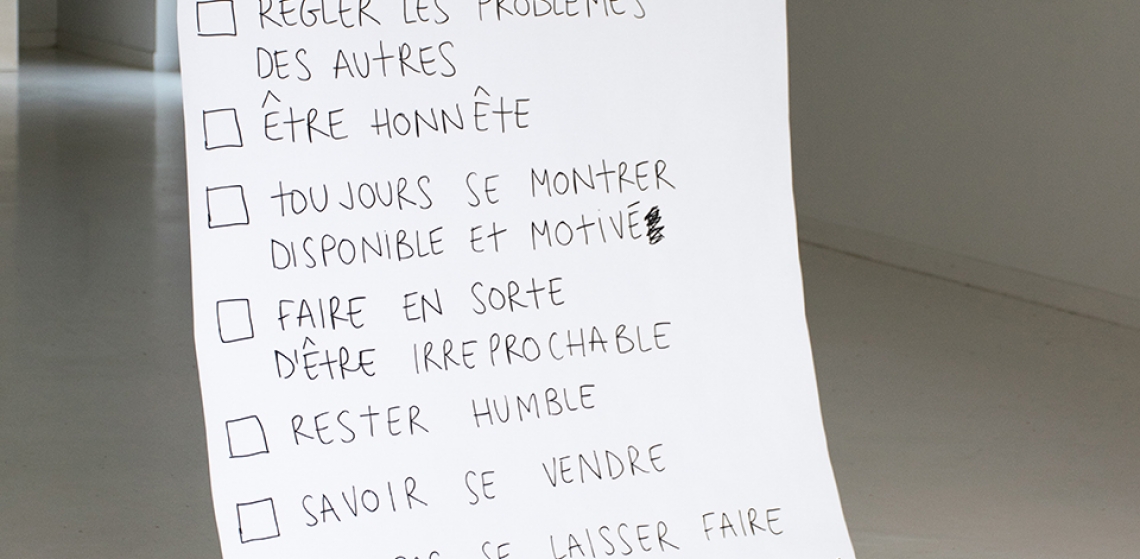 RÉGLER LES PROBLÈMES
DES AUTRES
ÊTRE HONNÊTE
TOUJOURS SE MONTRER
DISPONIBLE ET MOTIVÉ
FAIRE EN SORTE
D'ÊTRE IRREPROCHABLE
RESTER HUMBLE
SAVOIR SE VENDRE
PAS SE LAISSER FAIRE